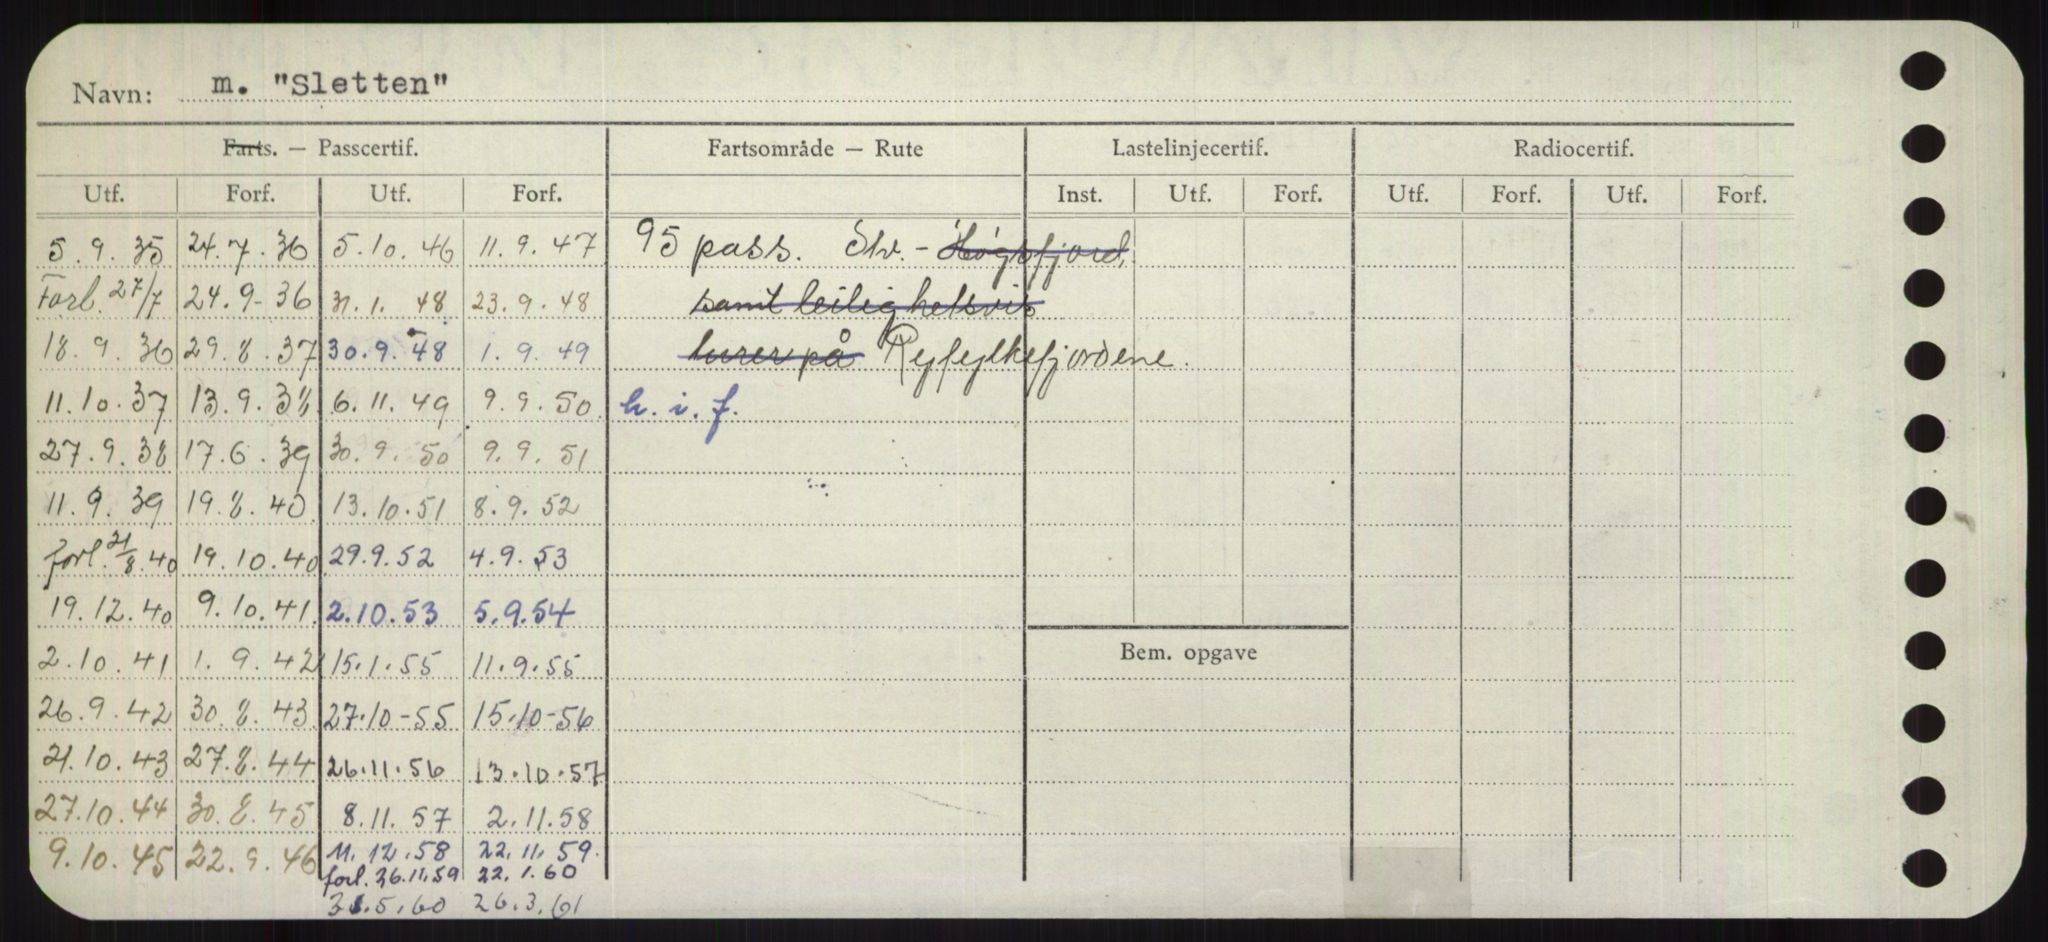 Navn: m. "Sletten"
Farts. — Passcertif. Fartsområde — Rute Lastelinjecertif. Radiocertif.
Utf. Forf. Utf. Forf. Inst. Utf. Forf. Utf. Forf. Utf. Forf.
5.9.35 24.7.36 5.10.46 11.9.47 95 pass. Stv. - Høgsfjord,
Forl. 27/7 24.9-36 31.1.48 23.9.48 samt leilighetsvis
18.9.36 29.8.37 30.9.48 1.9.49 turer på Ryfylkefjordene.
11.10.37 13.9.38 6.11.49 9.9.50 h. i. f.
27.9.38 17.6.39 30.9.50 9.9.51
11.9.39 19.8.40 13.10.51 8.9.52
forl. 21/8.40 19.10.40 29.9.52 4.9.53
19.12.40 9.10.41 2.10.53 5.9.54
2.10.41 1.9.42 15.1.55 11.9.55 Bem. opgave
26.9.42 30.8.43 27.10-55 15.10-56
21.10.43 27.8.44 26.11.56 13.10.57
27.10.44 30.8.45 8.11.57 2.11.58
9.10.45 22.9.46 11.12.58 22.11.59.
forl. 26.11.59 22.1.60
31.5.60 26.3.61